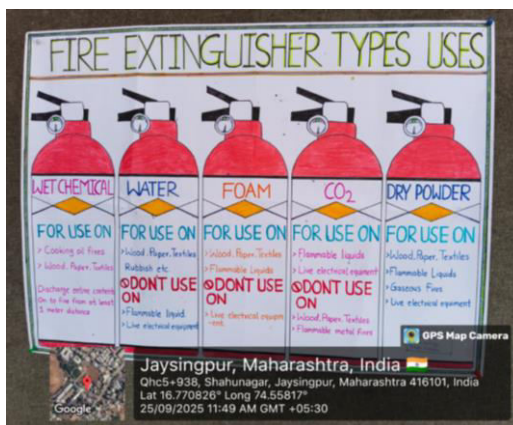 FIRE EXTINGUISHER TYPES USES
WET CHEMICAL
FOR USE ON
> Cooking oil fires
> Wood, Paper, Textiles
Discharge entire content
on to fire from at least
1 meter distance
WATER
FOR USE ON
> Wood, Paper, Textiles
Rubbish etc.
DON'T USE
ON
> Flammable liquid
> Live electrical equipment
FOAM
FOR USE ON
> Wood, Paper, Textiles
> Flammable Liquids
DON'T USE
ON
> Live electrical equipm
-ent.
CO2
FOR USE ON
> Flammable liquids
> Live electrical equipment
DON'T USE
ON
> Wood, Paper, Textiles
> Flammable metal fires
DRY POWDER
FOR USE ON
> Wood, Paper, Textiles
> Flammable Liquids
> Gaseous Fires
> Live electrical equipment
GPS Map Camera
Google
Jaysingpur, Maharashtra, India
Qhc5+938, Shahunagar, Jaysingpur, Maharashtra 416101, India
Lat 16.770826° Long 74.55817°
25/09/2025 11:49 AM GMT +05:30